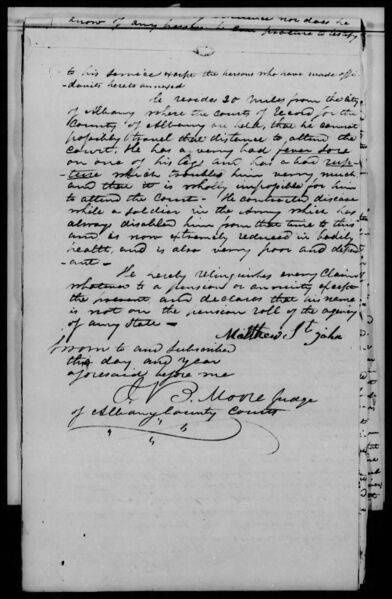 know of any
to his service except the persons who have made affi-
davits hereto annexed
He resides 20 miles from the City
of Albany where the courts of record for the
County of Albany are held, that he cannot
possibly travel that distance to attend the
Court. He has a verry bad fever sore
on one of his legs and has a bad rup-
ture which troubles him verry much
and that it is wholly impossible for him
to attend the Court - He contracted disease
while a soldier in the Army which has
always disabled him from that time to this
and is now extremely reduced in bodily
health, and is also verry poor and depen
dant -
He hereby relinquishes every claim
whatever to a pension or annuity except
the present, and declares that his name
is not on the pension roll of the agency
of any State -
Matthew St John
Sworn to and subscribed
the day and year
aforesaid before me
J V B. Moore Judge
of Albany County Courts